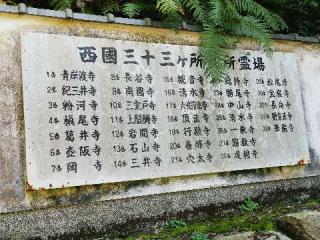 西國三十三ヶ所 所霊場
1番 青岸渡寺
2番 紀三井寺
3番 粉河寺
4番 槇尾寺
5番 葛井寺
6番 壺阪寺
7番 岡寺
8番 長谷寺
9番 南圓寺
10番 三室戸寺
11番 上醍醐寺
12番 岩間寺
13番 石山寺
14番 三井寺
15番 観音寺
16番 清水寺
17番
18番 頂法寺
19番 行願寺
20番 善峰寺
21番 穴太寺
22番 総持寺
23番 勝尾寺
24番 中山寺
25番 清水寺
26番 一乗寺
27番 圓教寺
28番 成相寺
29番 松尾寺
30番 宝厳寺
31番 長命寺
32番
33番 華厳寺